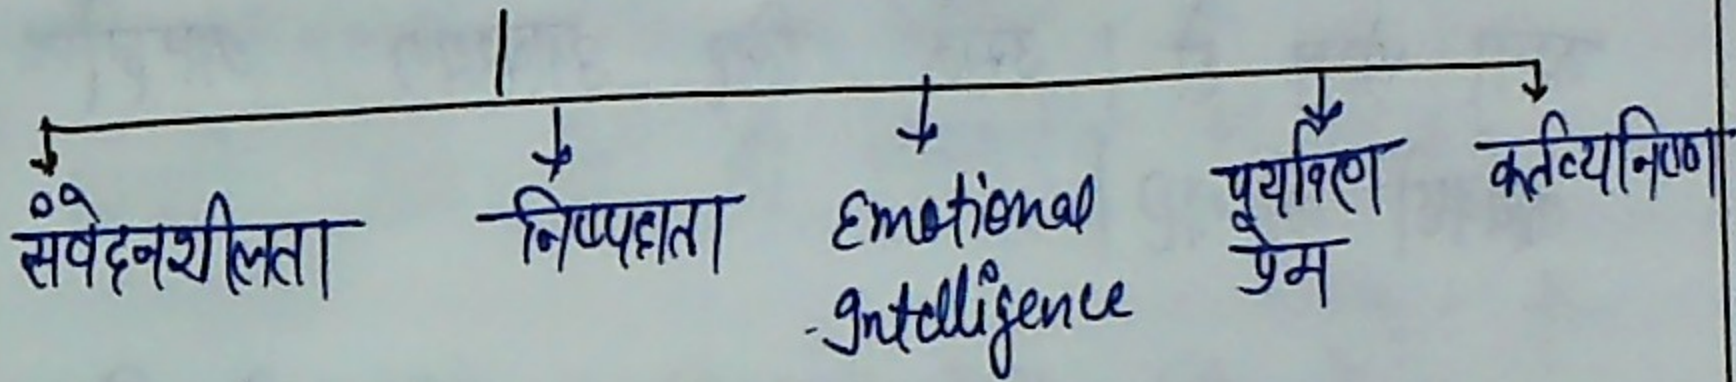 संवेदनशीलता
निष्पक्षता
Emotional
Intelligence
पर्यावरण
प्रेम
कर्तव्यनिष्ठा